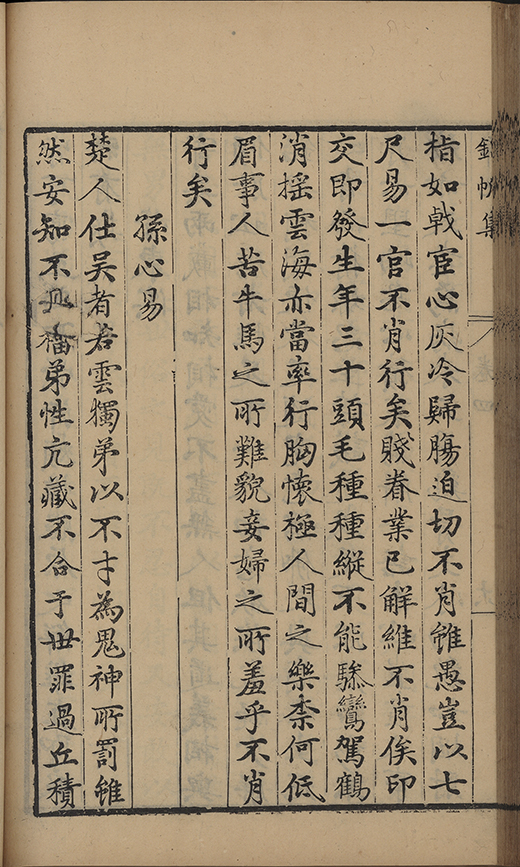 錦帆集
指如戟宦心灰冷歸膓迫切不肖雖愚豈以七
尺易一官不肖行矣賤眷業已解維不肖俟印
交即發生年三十頭毛種種縱不能驂鸞駕鶴
消搖雲海亦當率行胸懷極人間之樂柰何低
眉事人苦牛馬之所難貌妾婦之所羞乎不肖
行矣
孫心易
楚人仕吳者若雲獨弟以不才為鬼神所罰雖
然安知不福弟性亢藏不合于世罪過丘積